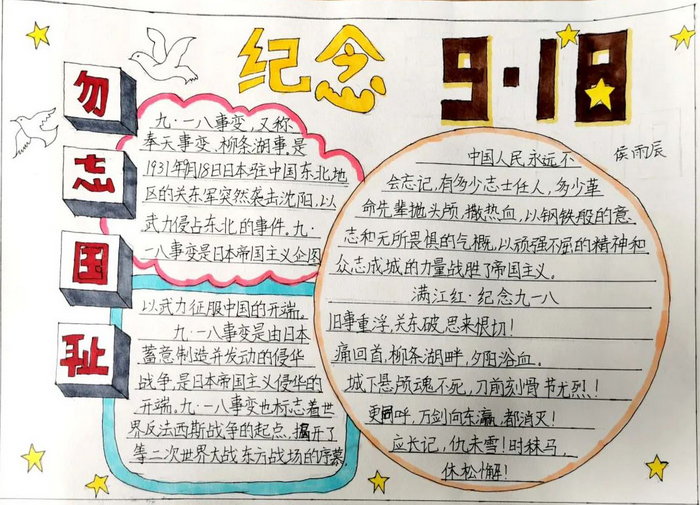 纪念 9·18
勿
忘
国
耻
九·一八事变,又称
奉天事变、柳条湖事,是
1931年9月18日日本驻中国东北地
区的关东军突然袭击沈阳,以
武力侵占东北的事件。九·
一八事变是日本帝国主义企图
以武力征服中国的开端。
九·一八事变是由日本
蓄意制造并发动的侵华
战争,是日本帝国主义侵华的
开端。九·一八事变也标志着世
界反法西斯战争的起点,揭开了
第二次世界大战东方战场的序幕。
中国人民永远不
会忘记,有多少志士任人,多少革
命先辈抛头颅,撒热血,以钢铁般的意
志和无所畏惧的气概,以顽强不屈的精神和
众志成城的力量战胜了帝国主义。
满江红·纪念九一八
旧事重浮,关东破,思来恨切!
痛回首,柳条湖畔,夕阳浴血。
城下悬颅魂不死,刀前刻骨节尤烈!!
更同呼,万剑向东瀛,都消灭!
应长记,仇未雪!时秣马,
休松懈!
侯雨辰